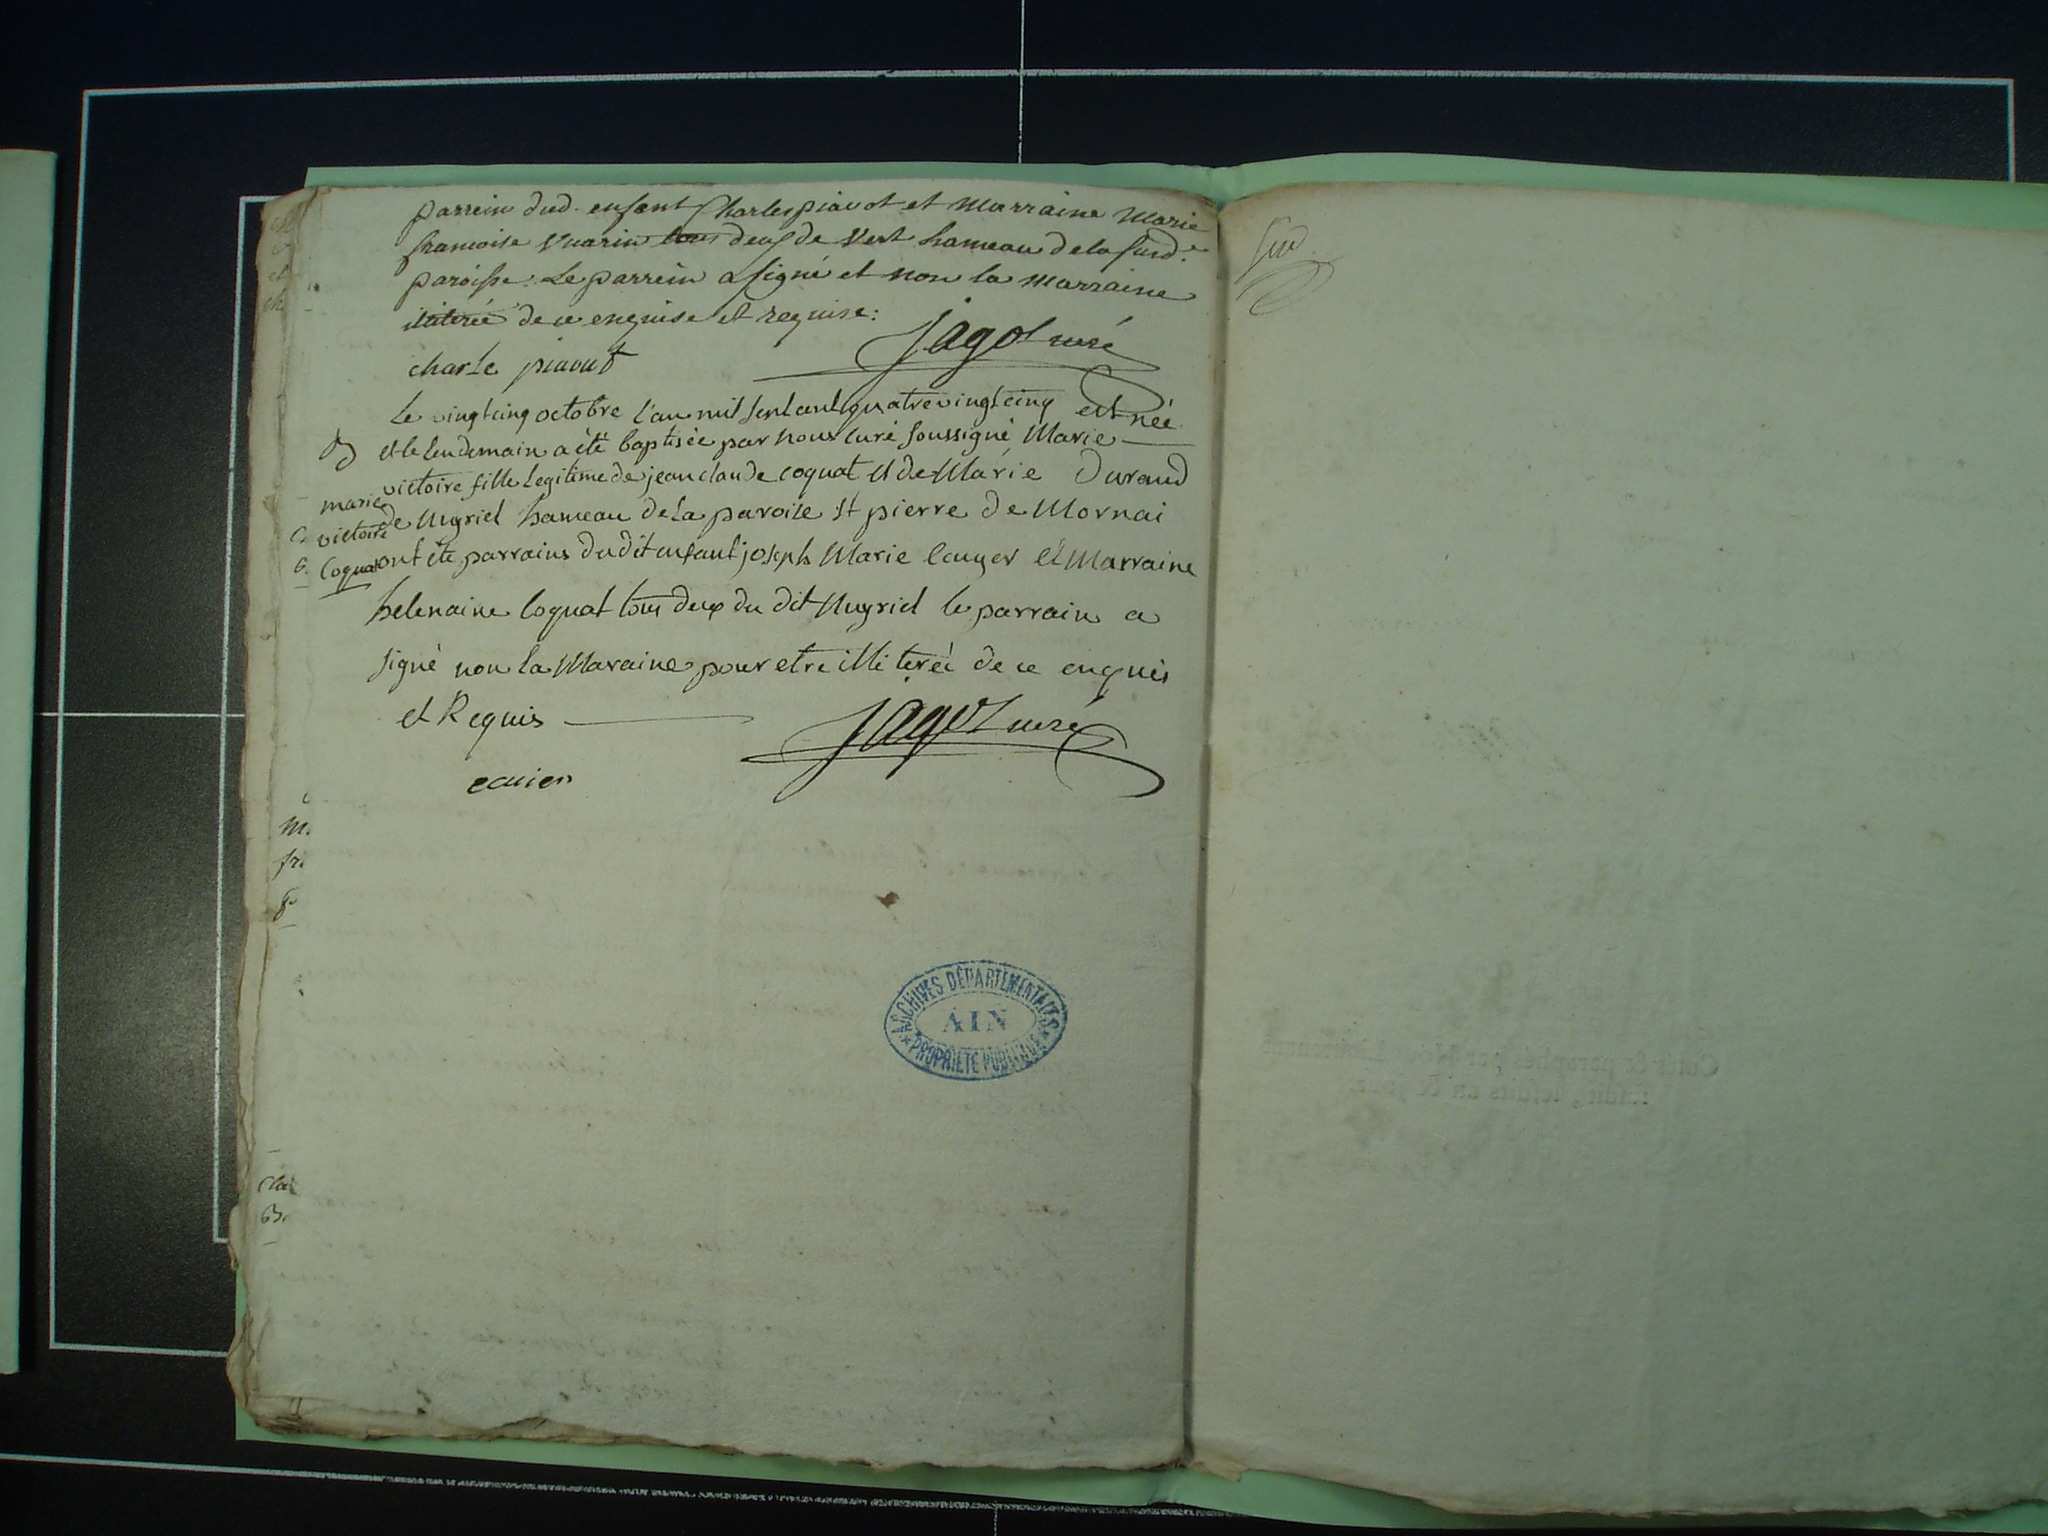 parrein dud. enfant Charles piavot et Marraine Marie
francoise Vuarin tous deux de Vert hameau de la susd.e
paroisse: Le parrein a signé et non la Marraine
de ce enquise et requise:
Jagot curé
charle piavut
Le vingt cinq octobre l'an mil sept cent quatre vingt cinq est née
et le lendemain a été baptisée par nous curé soussigné Marie
victoire fille legitime de jean claude coquat et de Marie Durand
marie
victoire
Coquat
de Ugriel hameau de La paroise st pierre de Mornai
ont été parrains du dit enfant joseph Marie et Marraine
helenaine Coquat tous deux du dit Ugriel le parrain a
signé non la Maraine pour etre illiterée de ce enquis
et Requis
Jagot curé
ARCHIVES DÉPARTEMENTALES
AIN
PROPRIÉTÉ PUBLIQUE